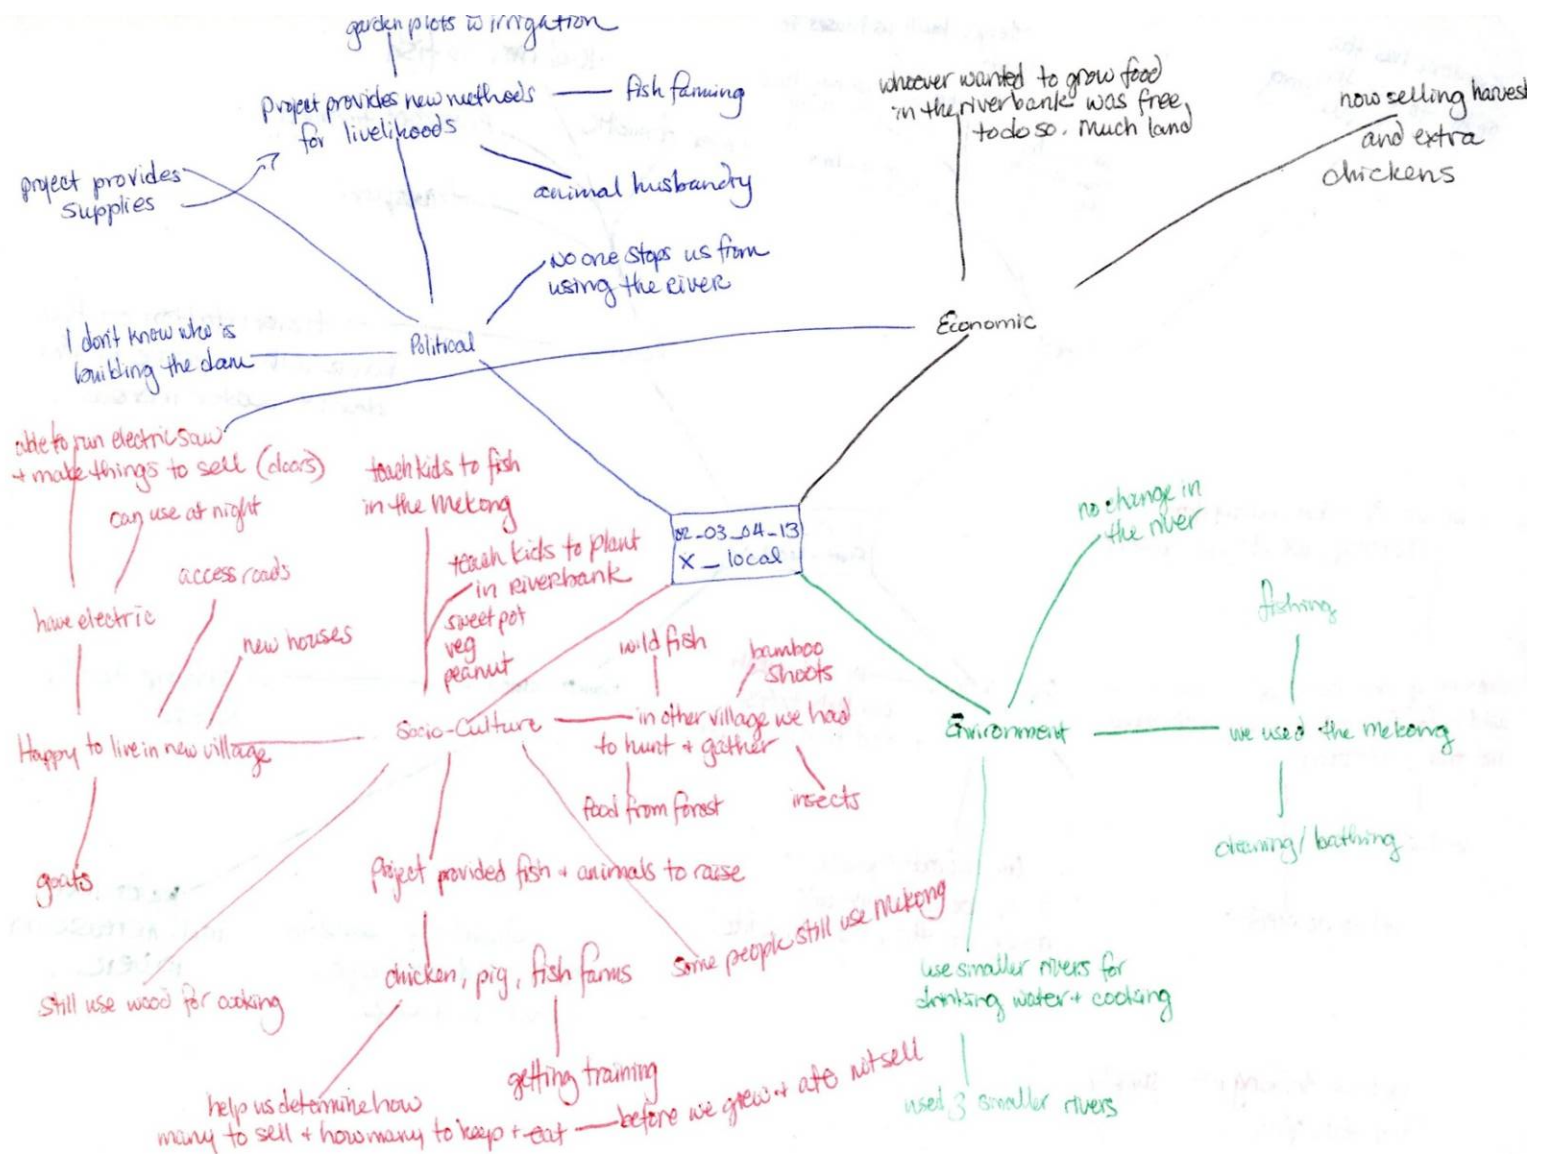 garden plots w irrigation
project provides new methods
for livelihoods
fish farming
animal husbandry
project provides
supplies
No one stops us from
using the river
I don't know who is
building the dam
Political
whoever wanted to grow food
in the riverbank was free
to do so. Much land
now selling harvest
and extra
chickens
Economic
able to run electric saw
+ make things to sell (doors)
can use at night
have electric
access roads
new houses
Happy to live in new village
goats
teach kids to fish
in the Mekong
teach kids to plant
in riverbank
sweet pot
veg
peanut
02_03_04_13
X_local
Socio-Culture
wild fish
bamboo
shoots
in other village we had
to hunt + gather
food from forest
insects
still use wood for cooking
Project provided fish + animals to raise
chicken, pig, fish farms
getting training
help us determine how
many to sell + how many to keep + eat
before we grew + ate not sell
Some people still use Mekong
no change in
the river
Environment
fishing
we used the Mekong
cleaning/bathing
use smaller rivers for
drinking water + cooking
used 3 smaller rivers